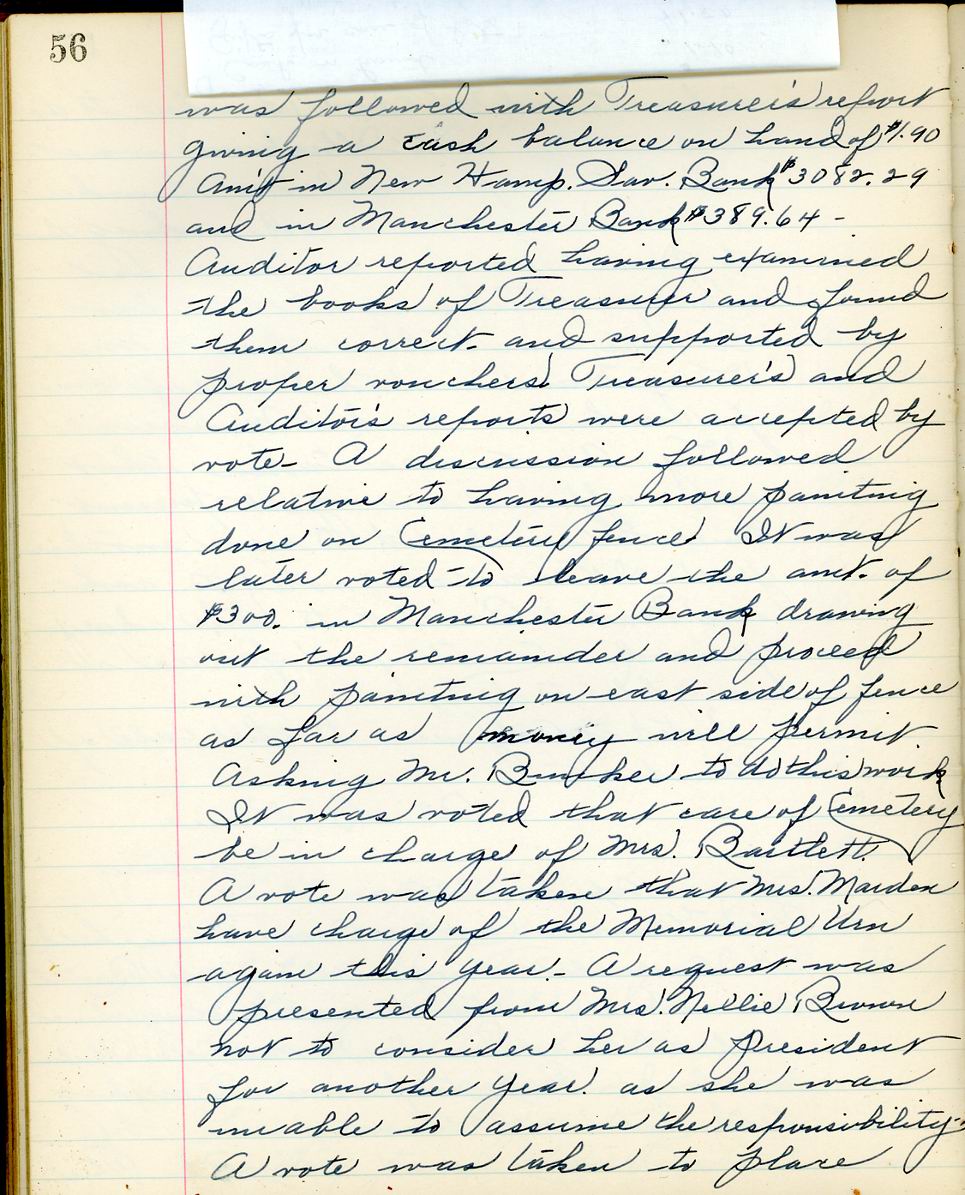 56
was followed with Treasurer's report
giving a cash balance on hand of $1.90
Am't in New Hamp. Sav. Bank $3082.29
and in Manchester Bank $389.64 -
Auditor reported having examined
the books of Treasurer and found
them correct - and supported by
proper vouchers. Treasurer's and
Auditor's reports were accepted by
vote - A discussion followed
relative to having more painting
done on Cemetery fence. It was
later voted to leave the amt. of
$300. in Manchester Bank drawing
out the remainder and proceed
with painting on east side of fence
as far as money will permit
Asking Mr. Bunker to do this work
It was voted that care of Cemetery
be in charge of Mrs. Bartlett.
A vote was taken that Mrs. Marden
have charge of the Memorial Urn
again this year - A request was
presented from Mrs. Nellie Brown
not to consider her as President
for another year. as she was
unable to assume the responsibility -
A vote was taken to place